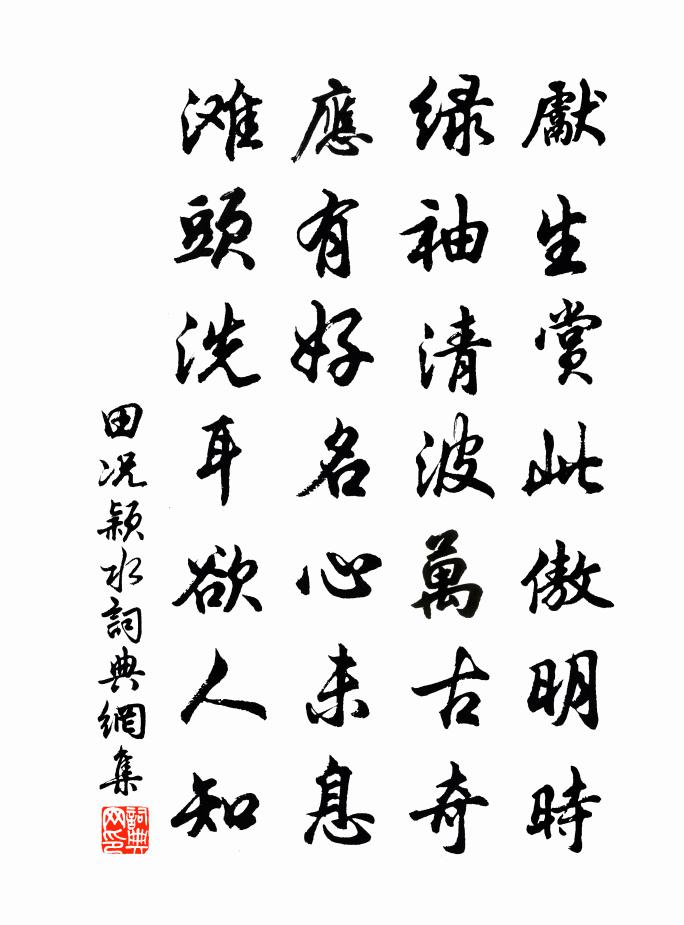 獻生賞此傲明時
緑袖清波萬古奇
應有好名心未息
滩頭洗耳欲人知
田况颍水詞典網集
詞典网印